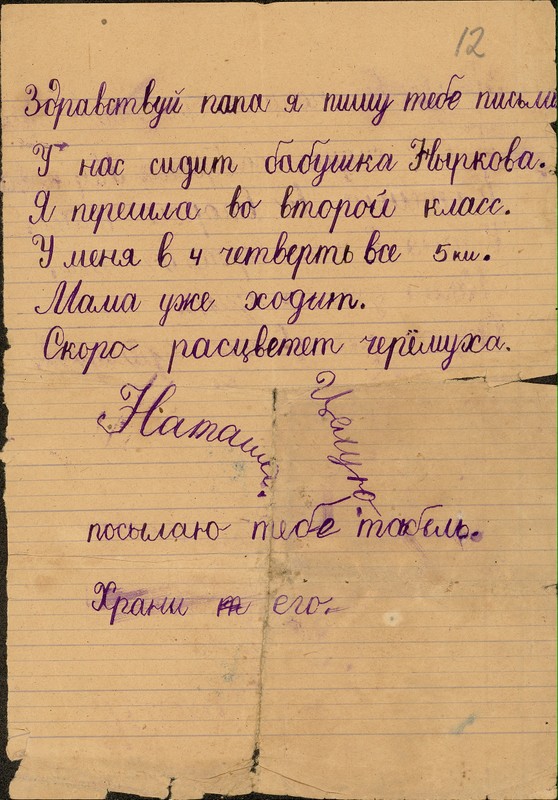 12
Здравствуй папа я пишу тебе письмо
У нас сидит бабушка Ныркова.
Я перешла во второй класс.
У меня в 4 четверть все 5ки.
Мама уже ходит.
Скоро расцветет черёмуха.
Наташа.
Целую.
посылаю тебе табель.
Храни его.